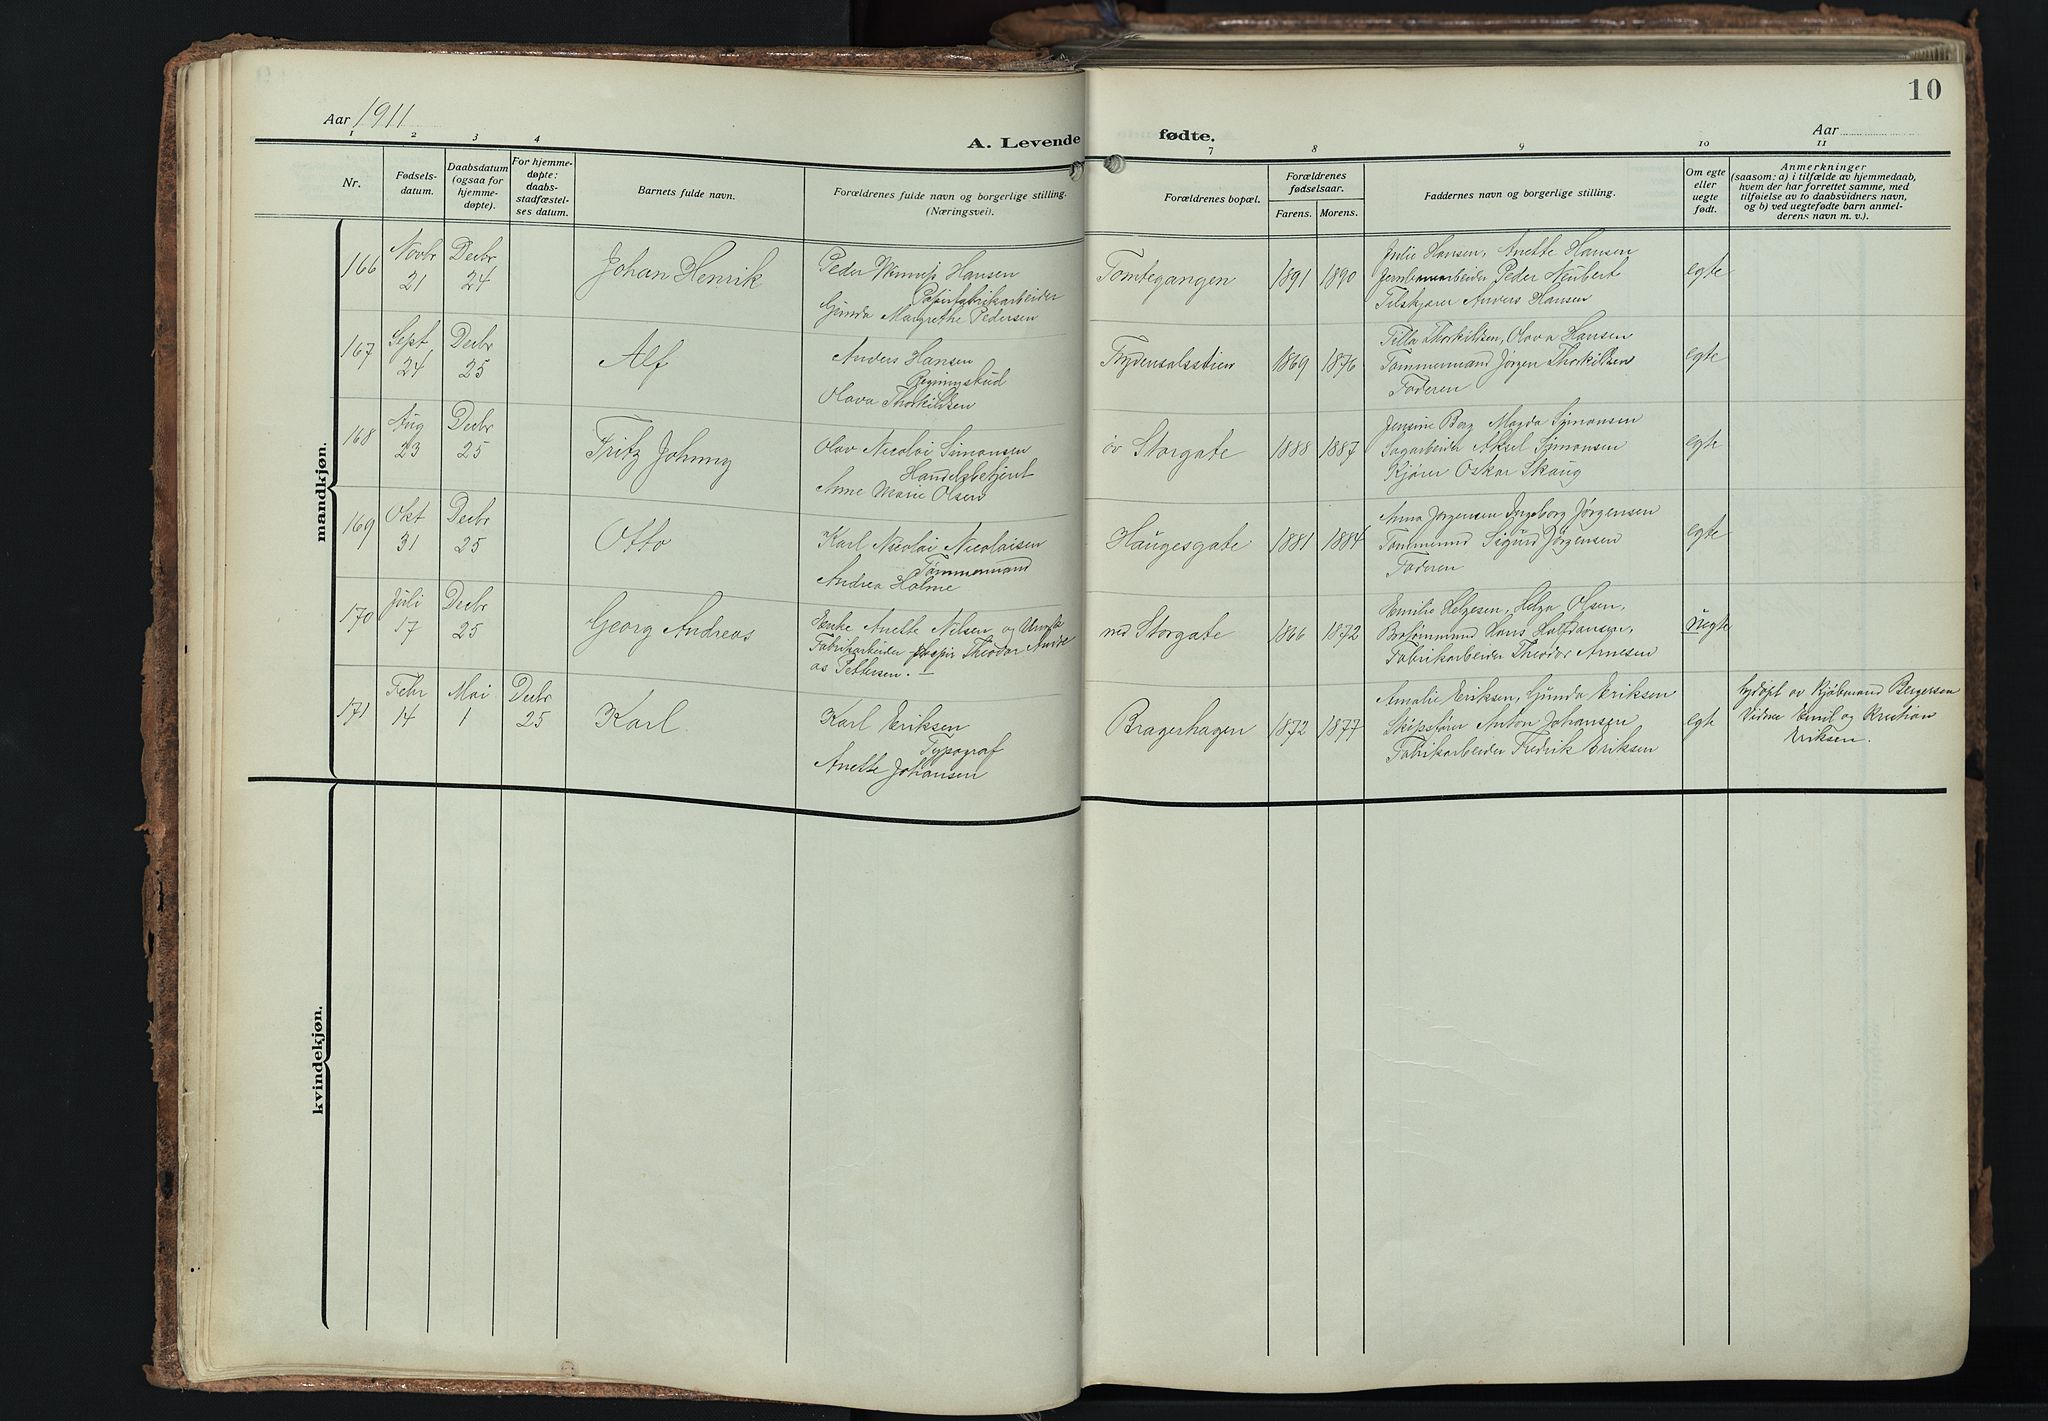 10
Aar 1911
A. Levende fødte.
Aar
1 2 3 4 7 8 9 10 11
Nr.
Fødsels-
datum.
Daabsdatum
(ogsaa for
hjemme-
døpte).
For hjemme-
døpte:
daabs-
stadfæstel-
ses datum.
Barnets fulde navn.
Forældrenes fulde navn og borgerlige stilling.
(Næringsvei).
Forældrenes bopæl.
Forældrenes
fødselsaar.
Farens. Morens.
Faddernes navn og borgerlige stilling.
Om egte
eller
uegte
født.
Anmerkninger
(saasom: a) i tilfælde av hjemmedaab,
hvem der har forrettet samme, med
tilføielse av to daabsvidners navn,
og b) ved uegtefødte barn anmel-
derens navn m. v.).
mandkjøn.
166
Novbr
21
Decbr
24
Johan Henrik
Peder Hansen
Papirfabrikarbeider
Gunda Margrethe Pedersen
Tomtegangen
1891 1890
Julie Hansen, Anette Hansen
Peder Neubert
Anders Hansen
egte
167
Sept
24
Decbr
25
Alf
Anders Hansen
Olava Thorkildsen
Frydendalsstien
1869 1876
Tilla Thorkildsen, Olava Hansen
Tømmermand Jørgen Thorkildsen
Faderen
egte
168
Aug
23
Decbr
25
Fritz Johnny
Olav Nicolai Simonsen
Handelsbetjent
Anne Marie Olsen
øv Storgate
1888 1887
Jensine Berg Magda Simonsen
Sagarbeider Aksel Simonsen
Kjører Oskar Skaug
egte
169
Okt
31
Decbr
25
Otto
Karl Nicolai Nicolaisen
Tømmermand
Andrea Holme
Haugesgate
1881 1884
Anna Jørgensen Ingeborg Jørgensen
Tømmermd Sigurd Jørgensen
Faderen
egte
170
Juli
17
Decbr
25
Georg Andreas
Enke Anette Nilsen og Ungk
Fabrikarbeider Theodor Andre
as Pettersen.
ned Storgate
1866 1872
Emilie Helgesen, Helga Olsen,
Hans Halfdansen,
Fabrikarbeider Theodor Arnesen
uegte
171
Febr
14
Mai
1
Decbr
25
Karl
Karl Eriksen
Typograf
Anette Johansen
Bragerhagen
1872 1877
Amalie Eriksen, Gunda Eriksen
Anton Johansen
Fabrikarbeider Fredrik Eriksen
egte
hjdøpt av Kjøbmand Bergersen
Vidner Emil og Kristian
Eriksen.
kvindekjøn.